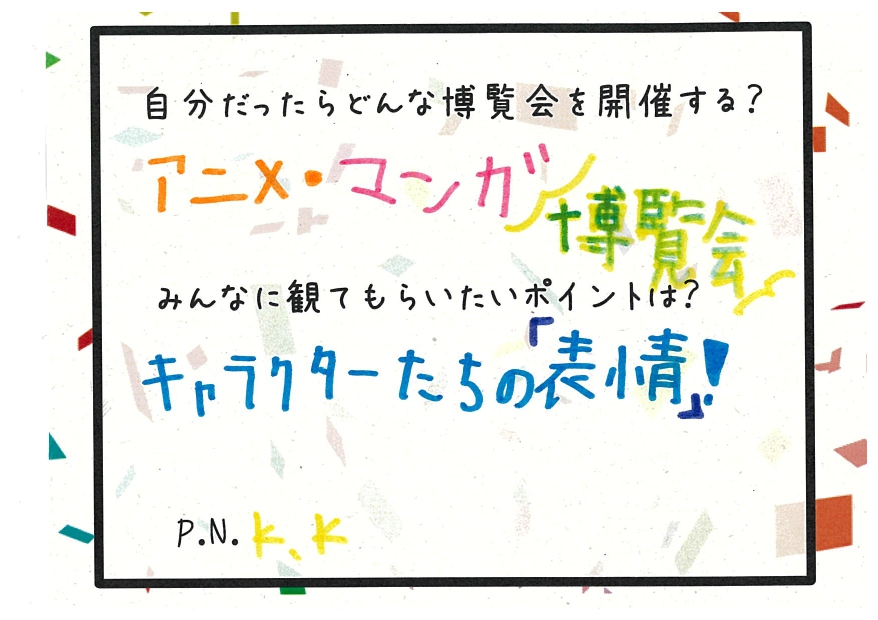 自分だったらどんな博覧会を開催する?
アニメ・マンガ博覧会
みんなに観てもらいたいポイントは?
キャラクターたちの『表情』!
P.N. K.K